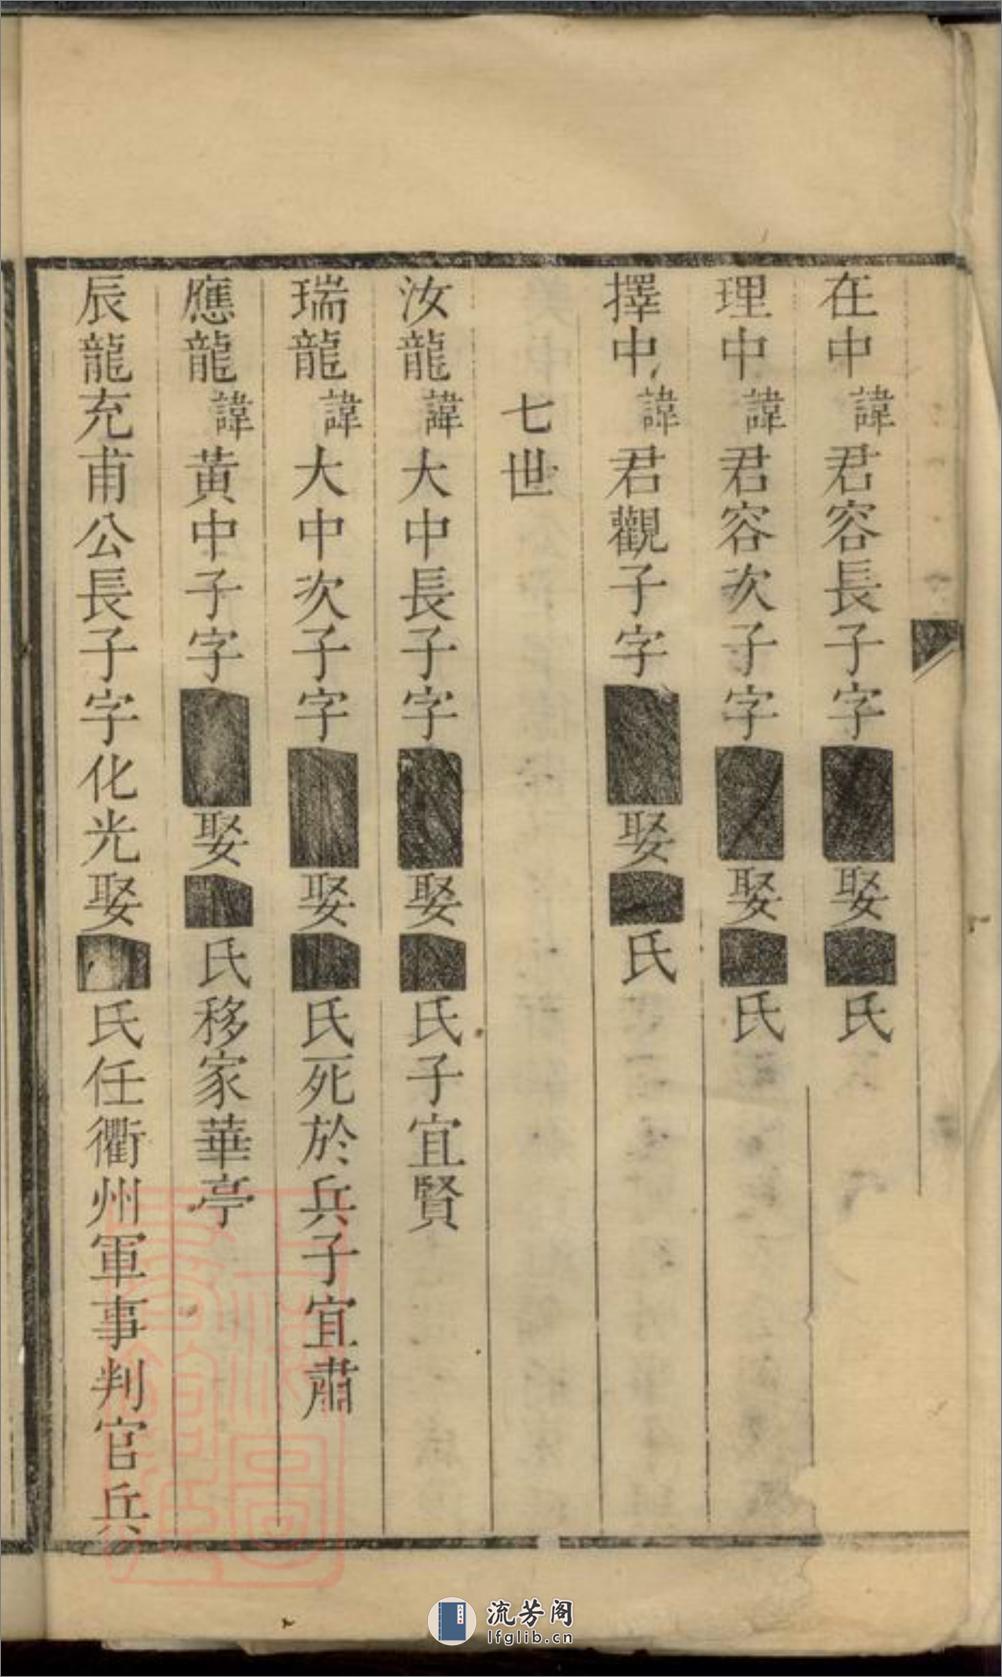 在中諱君容長子字■■娶■氏
理中諱君容次子字■■娶■氏
擇中諱君觀子字■■娶■氏
七世
汝龍諱大中長子字■■娶■氏子宜賢
瑞龍諱大中次子字■■娶■氏死於兵子宜肅
應龍諱黃中子字■■娶■氏移家華亭
辰龍充甫公長子字化光娶■氏任衢州軍事判官兵
流芳阁
lfglib.cn